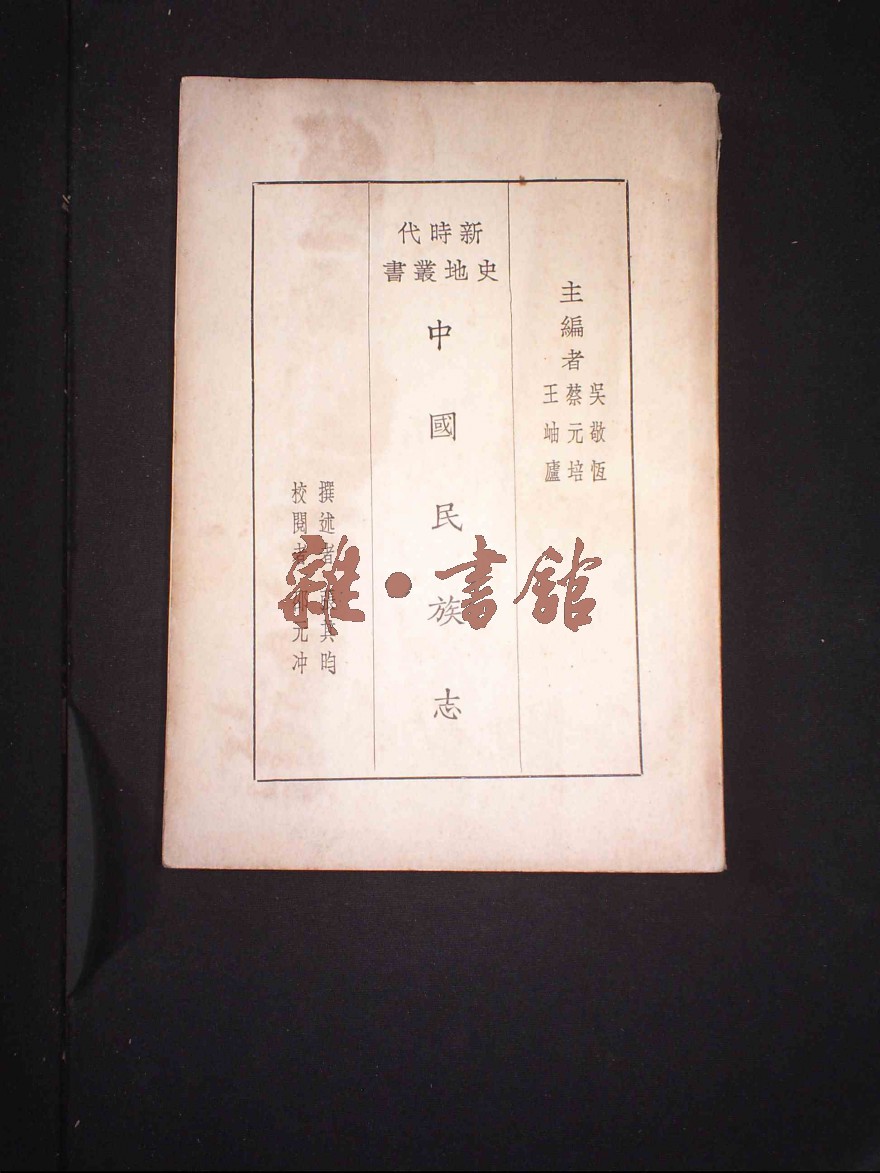 主編者
吳敬恆
蔡元培
王岫廬
新時代
史地叢書
中國民族志
撰述者 張其昀
校閱者 邵元冲
雜·書館